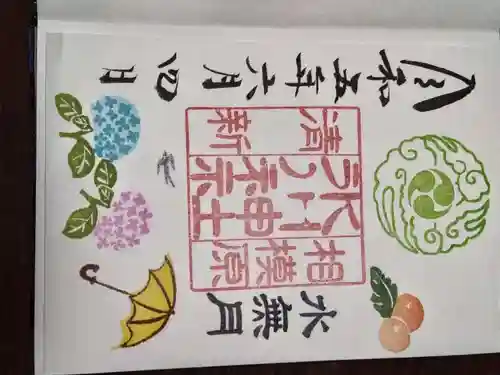 水無月
相模原
氷川神社
清新
令和五年六月四日